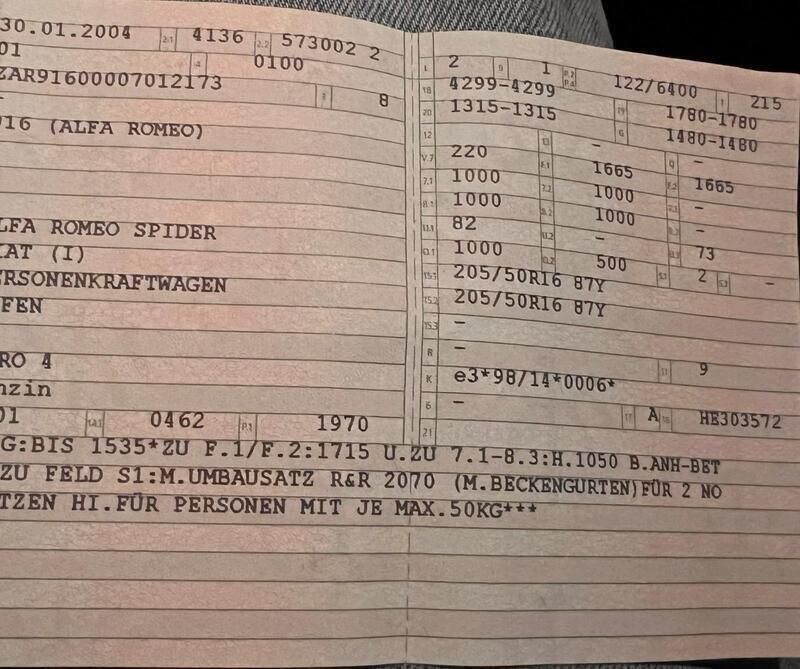 30.01.2004 2.1 4136 2.2 573002 2
01 4 0100
ZAR91600007012173 3 8
-
916 (ALFA ROMEO)
ALFA ROMEO SPIDER
FIAT (I)
PERSONENKRAFTWAGEN
OFFEN
EURO 4
Benzin
01 14.1 0462 P.1 1970
L 2 9 1 P.2 P.4 122/6400 T 215
18 4299-4299 19 1780-1780
20 1315-1315 G 1480-1480
12 - 13 - Q -
V.7 220 F.1 1665 F.2 1665
7.1 1000 7.2 1000 7.3 -
8.1 1000 8.2 1000 8.3 -
U.1 82 U.2 - U.3 73
O.1 1000 O.2 500 S.1 2 S.2 -
15.1 205/50R16 87Y
15.2 205/50R16 87Y
15.3 -
R - 11 9
K e3*98/14*0006*
6 - 17 A 16 HE303572
21
G:BIS 1535*ZU F.1/F.2:1715 U.ZU 7.1-8.3:H.1050 B.ANH-BET
ZU FELD S1:M.UMBAUSATZ R&R 2070 (M.BECKENGURTEN)FÜR 2 NO
TZEN HI.FÜR PERSONEN MIT JE MAX.50KG***